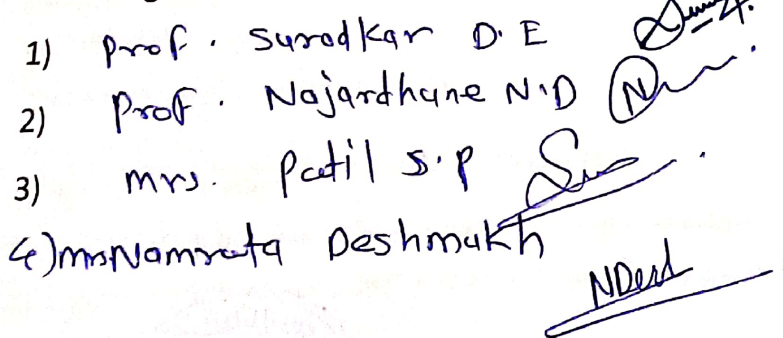 1) Prof. Surodkar D.E
2) Prof. Najardhane N.D
3) mrs. Patil S.P
4) mrs Namrata Deshmukh
NDesd